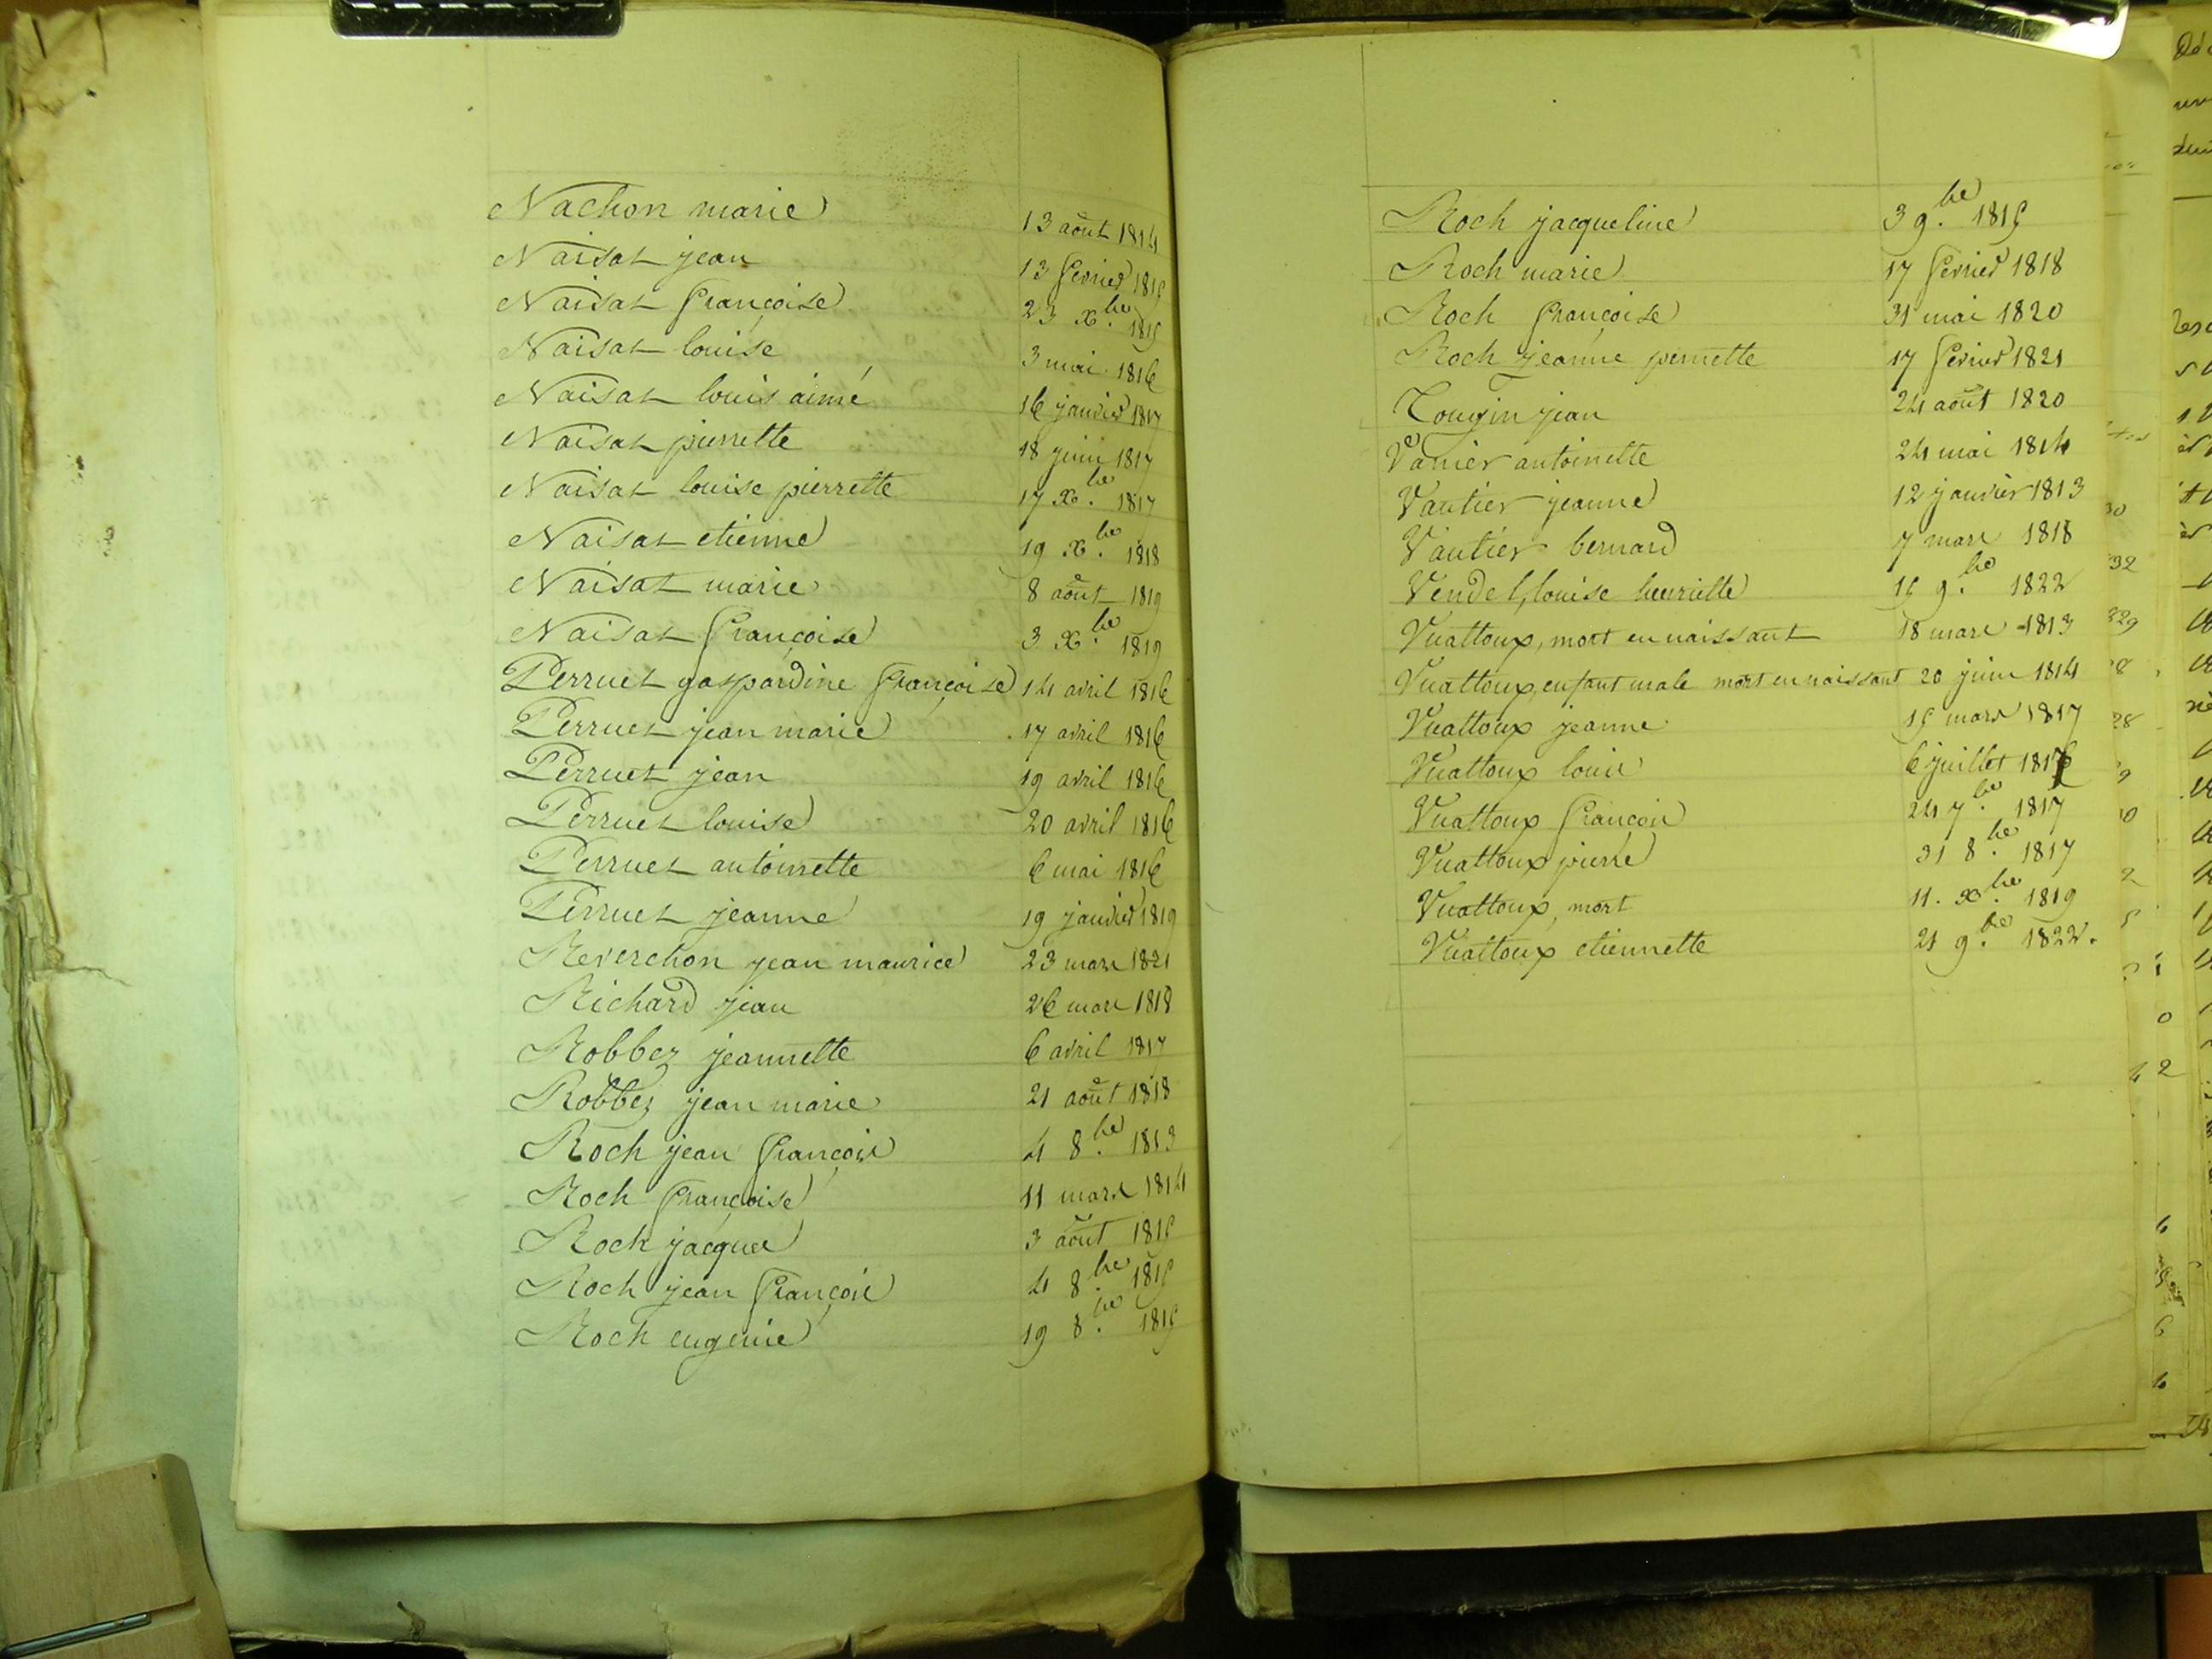 Nachon marie 13 août 1814
Naisat jean 13 fevrier 1815
Naisat françoise 23 xbre 1815
Naisat louise 3 mai 1816
Naisat louis aimé 16 janvier 1817
Naisat pierrette 18 juin 1817
Naisat louise pierrette 17 xbre 1817
Naisat etienne 19 xbre 1818
Naisat marie 8 août 1819
Naisat françoise 3 xbre 1819
Perruet gaspardine françoise 14 avril 1816
Perruet jean marie 17 avril 1816
Perruet jean 19 avril 1816
Perruet louise 20 avril 1816
Perruet antoinette 6 mai 1816
Perruet jeanne 19 janvier 1819
Reverchon jean maurice 23 mars 1821
Richard jean 26 mars 1818
Robbez jeannette 6 avril 1817
Robbez jean marie 21 août 1818
Roch jean françois 4 8bre 1813
Roch françoise 11 mars 1814
Roch jacques 3 août 1815
Roch jean françois 4 8bre 1815
Roch eugenie 19 8bre 1815
Roch jacqueline 3 9bre 1815
Roch marie 17 fevrier 1818
Roch françoise 31 mai 1820
Roch jeanne pernette 17 fevrier 1821
Tougin jean 24 août 1820
Vanier antoinette 24 mai 1814
Vautier jeanne 12 janvier 1813
Vautier bernard 7 mars 1818
Vendel, louise henriette 15 9bre 1822
Vuattoux, mort en naissant 18 mars 1813
Vuattoux, enfant male mort en naissant 20 juin 1814
Vuattoux jeanne 15 mars 1817
Vuattoux louis 6 juillet
Vuattoux françois 24 7bre 1817
Vuattoux pierre 31 8bre 1817
Vuattoux, mort 11. xbre 1819
Vuattoux etiennette 21 9bre 1822.